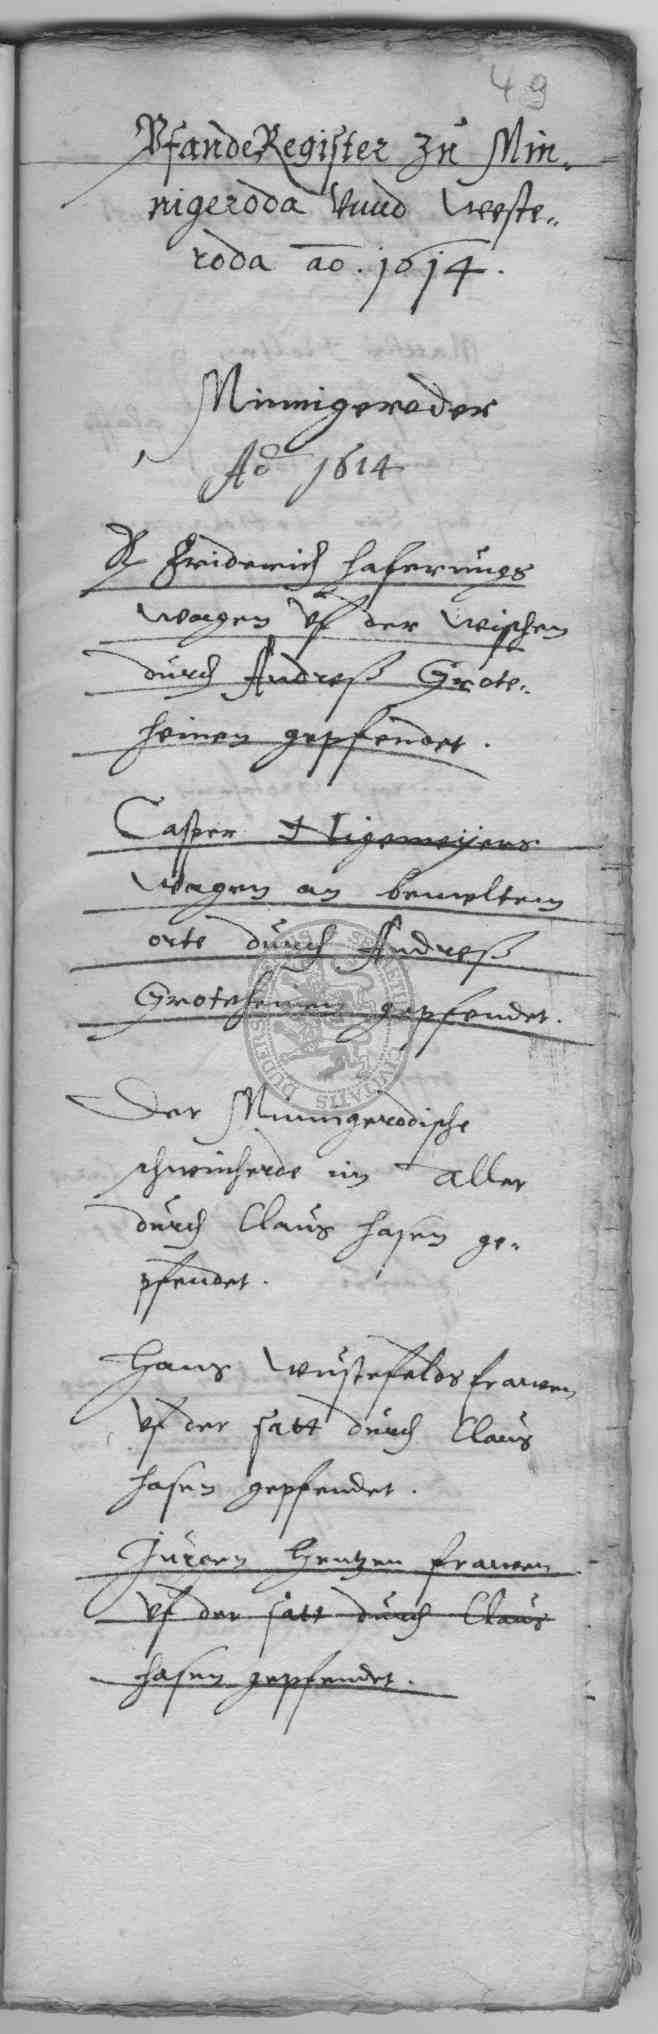 49
PfandeRegister zu Min-
nigeroda vnnd Weste-
roda ao. 1614.
Minnigeroder
Ao 1614
Friderich Haferungs
wagen vf der wischen
durch Andreß Grote-
heinen gepfendet.
Casper Nigemeyers
wagen an bemeltem
orte durch Andreß
Groteheinen gepfendet.
Der Minnigerodische
schweinherde im aller
durch Claus Hasen ge-
pfendet.
Hans Wustefelds frawen
vf der satt durch Claus
Hasen gepfendet.
Jurgen Hentzen frawen
vf der satt durch Claus
Hasen gepfendet.